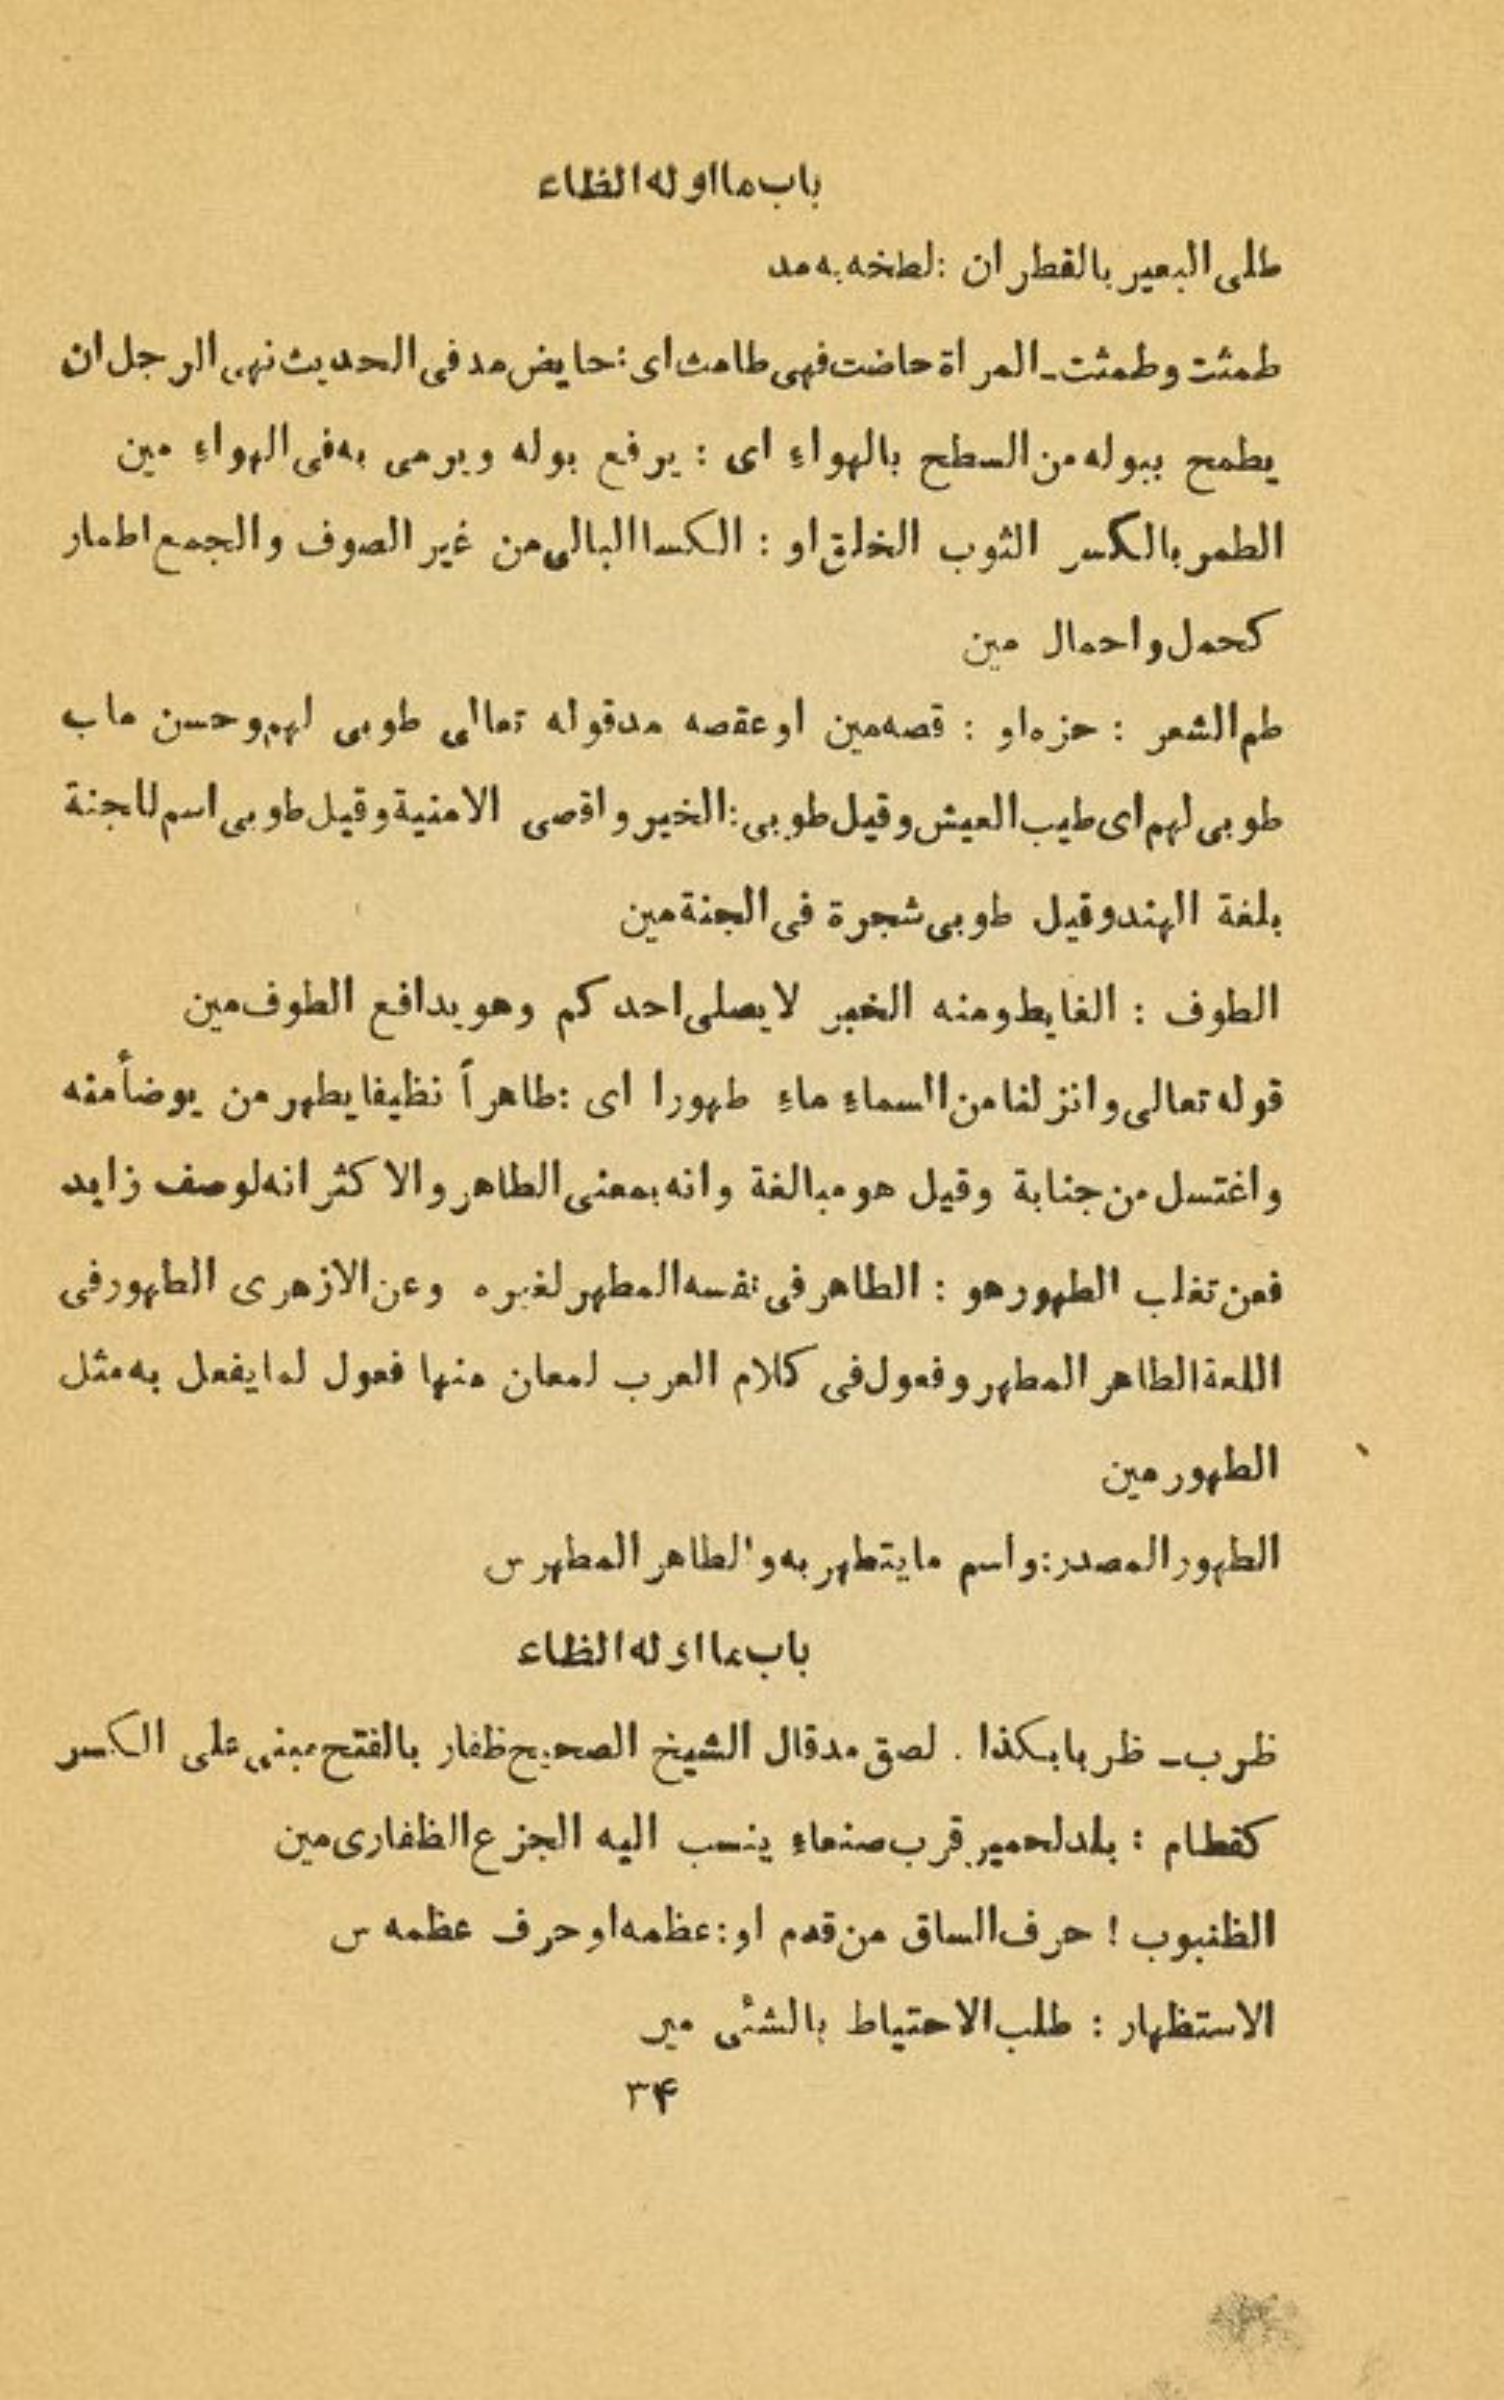 باب ما اوله الظاء
طلى البعير بالقطران : لطخه به مد
طمثت وطمثت ـ المراة حاضت فهى طامث اى : حايض مد فى الحديث نهى الرجل ان
يطمح ببوله من السطح بالهواءِ اى : يرفع بوله ويرمى به فى الهواءِ مين
الطمر بالكسر الثوب الخلق او : الكسا البالى من غير الصوف والجمع اطمار
كحمل واحمال مين
طم الشعر : حزه او : قصه مين او عقصه مد قوله تعالى طوبى لهم وحسن ماب
طوبى لهم اى طيب العيش وقيل طوبى : الخير واقصى الامنية وقيل طوبى اسم للجنة
بلغة الهند وقيل طوبى شجرة فى الجنة مين
الطوف : الغايط ومنه الخبر لا يصلى احدكم وهو يدافع الطوف مين
قوله تعالى وانزلنا من السماءِ ماءِ طهورا اى : طاهراً نظيفا يطهر من يوضأ منه
واغتسل من جنابة وقيل هو مبالغة وانه بمعنى الطاهر والاكثر انه لوصف زايد
فعن تغلب الطهور هو : الطاهر فى نفسه المطهر لغيره وعن الازهرى الطهور فى
اللعة الطاهر المطهر وفعول فى كلام العرب لمعان منها فعول لما يفعل به مثل
الطهور مين
الطهور المصدر : واسم ما يتطهر به والطاهر المطهر س
باب ما اوله الظاء
ظرب ـ ظربا بكذا . لصق مد قال الشيخ الصحيح ظفار بالفتح مبنى على الكسر
كقطام : بلد لحمير قرب صنعاءِ ينسب اليه الجزع الظفارى مين
الظنبوب ! حرف الساق من قدم او : عظمه او حرف عظمه س
الاستظهار : طلب الاحتياط بالشئى مير
۳۴